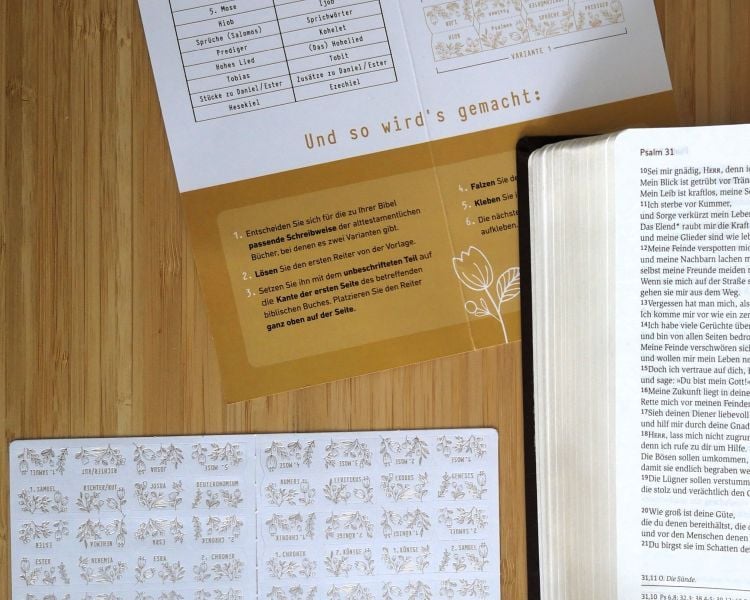 5. Mose
Ijob
Hiob
Sprichwörter
Sprüche (Salomos)
Kohelet
Prediger
(Das) Hohelied
Hohes Lied
Tobit
Tobias
Zusätze zu Daniel/Ester
Stücke zu Daniel/Ester
Ezechiel
Hesekiel
HIOB
Psalmen
SPRÜCHE
PREDIGER
VARIANTE 1
Und so wird's gemacht:
1. Entscheiden Sie sich für die zu Ihrer Bibel
passende Schreibweise der alttestamentlichen
Bücher, bei denen es zwei Varianten gibt.
2. Lösen Sie den ersten Reiter von der Vorlage.
3. Setzen Sie ihn mit dem unbeschrifteten Teil auf
die Kante der ersten Seite des betreffenden
biblischen Buches. Platzieren Sie den Reiter
ganz oben auf der Seite.
4. Falzen Sie de
5. Kleben Sie
6. Die nächste
aufkleben.
Psalm 31
10Sei mir gnädig, HERR, denn ic
Mein Blick ist getrübt vor Trän
Mein Leib ist kraftlos, meine Se
11Ich sterbe vor Kummer,
und Sorge verkürzt mein Leben
Das Elend* raubt mir die Kraft
und meine Glieder sind wie leb
12Meine Feinde verspotten mic
und meine Nachbarn lachen m
selbst meine Freunde meiden m
Wenn sie mich auf der Straße s
gehen sie mir aus dem Weg.
13Vergessen hat man mich, als
Ich komme mir vor wie ein zer
14Ich habe viele Gerüchte über
und bin von allen Seiten bedro
Meine Feinde verschwören sich
und wollen mir mein Leben ne
15Doch ich vertraue auf dich, H
und sage: »Du bist mein Gott!«
16Meine Zukunft liegt in deine
Rette mich vor meinen Feinden
17Sieh deinen Diener liebevoll
und hilf mir durch deine Gnad
18HERR, lass mich nicht zugrun
denn ich rufe zu dir um Hilfe.
Die Bösen sollen umkommen,
damit sie endlich begraben we
19Die Lügner sollen verstumm
die stolz und verächtlich den G
20Wie groß ist deine Güte,
die du denen bereithältst, die d
und vor den Menschen denen
21Du birgst sie im Schatten de
31,11 O. Die Sünde.
1. SAMUEL
RICHTER/RUT
JOSUA
5. MOSE
4. MOSE
3. MOSE
2. MOSE
1. MOSE
1. SAMUEL
RICHTER/RUT
JOSUA
DEUTERONOMIUM
NUMERI
LEVITIKUS
EXODUS
GENESIS
ESTER
NEHEMIA
ESRA
2. CHRONIK
1. CHRONIK
2. KÖNIGE
1. KÖNIGE
2. SAMUEL
ESTER
NEHEMIA
ESRA
2. CHRONIK
1. CHRONIK
2. KÖNIGE
1. KÖNIGE
2. SAMUEL